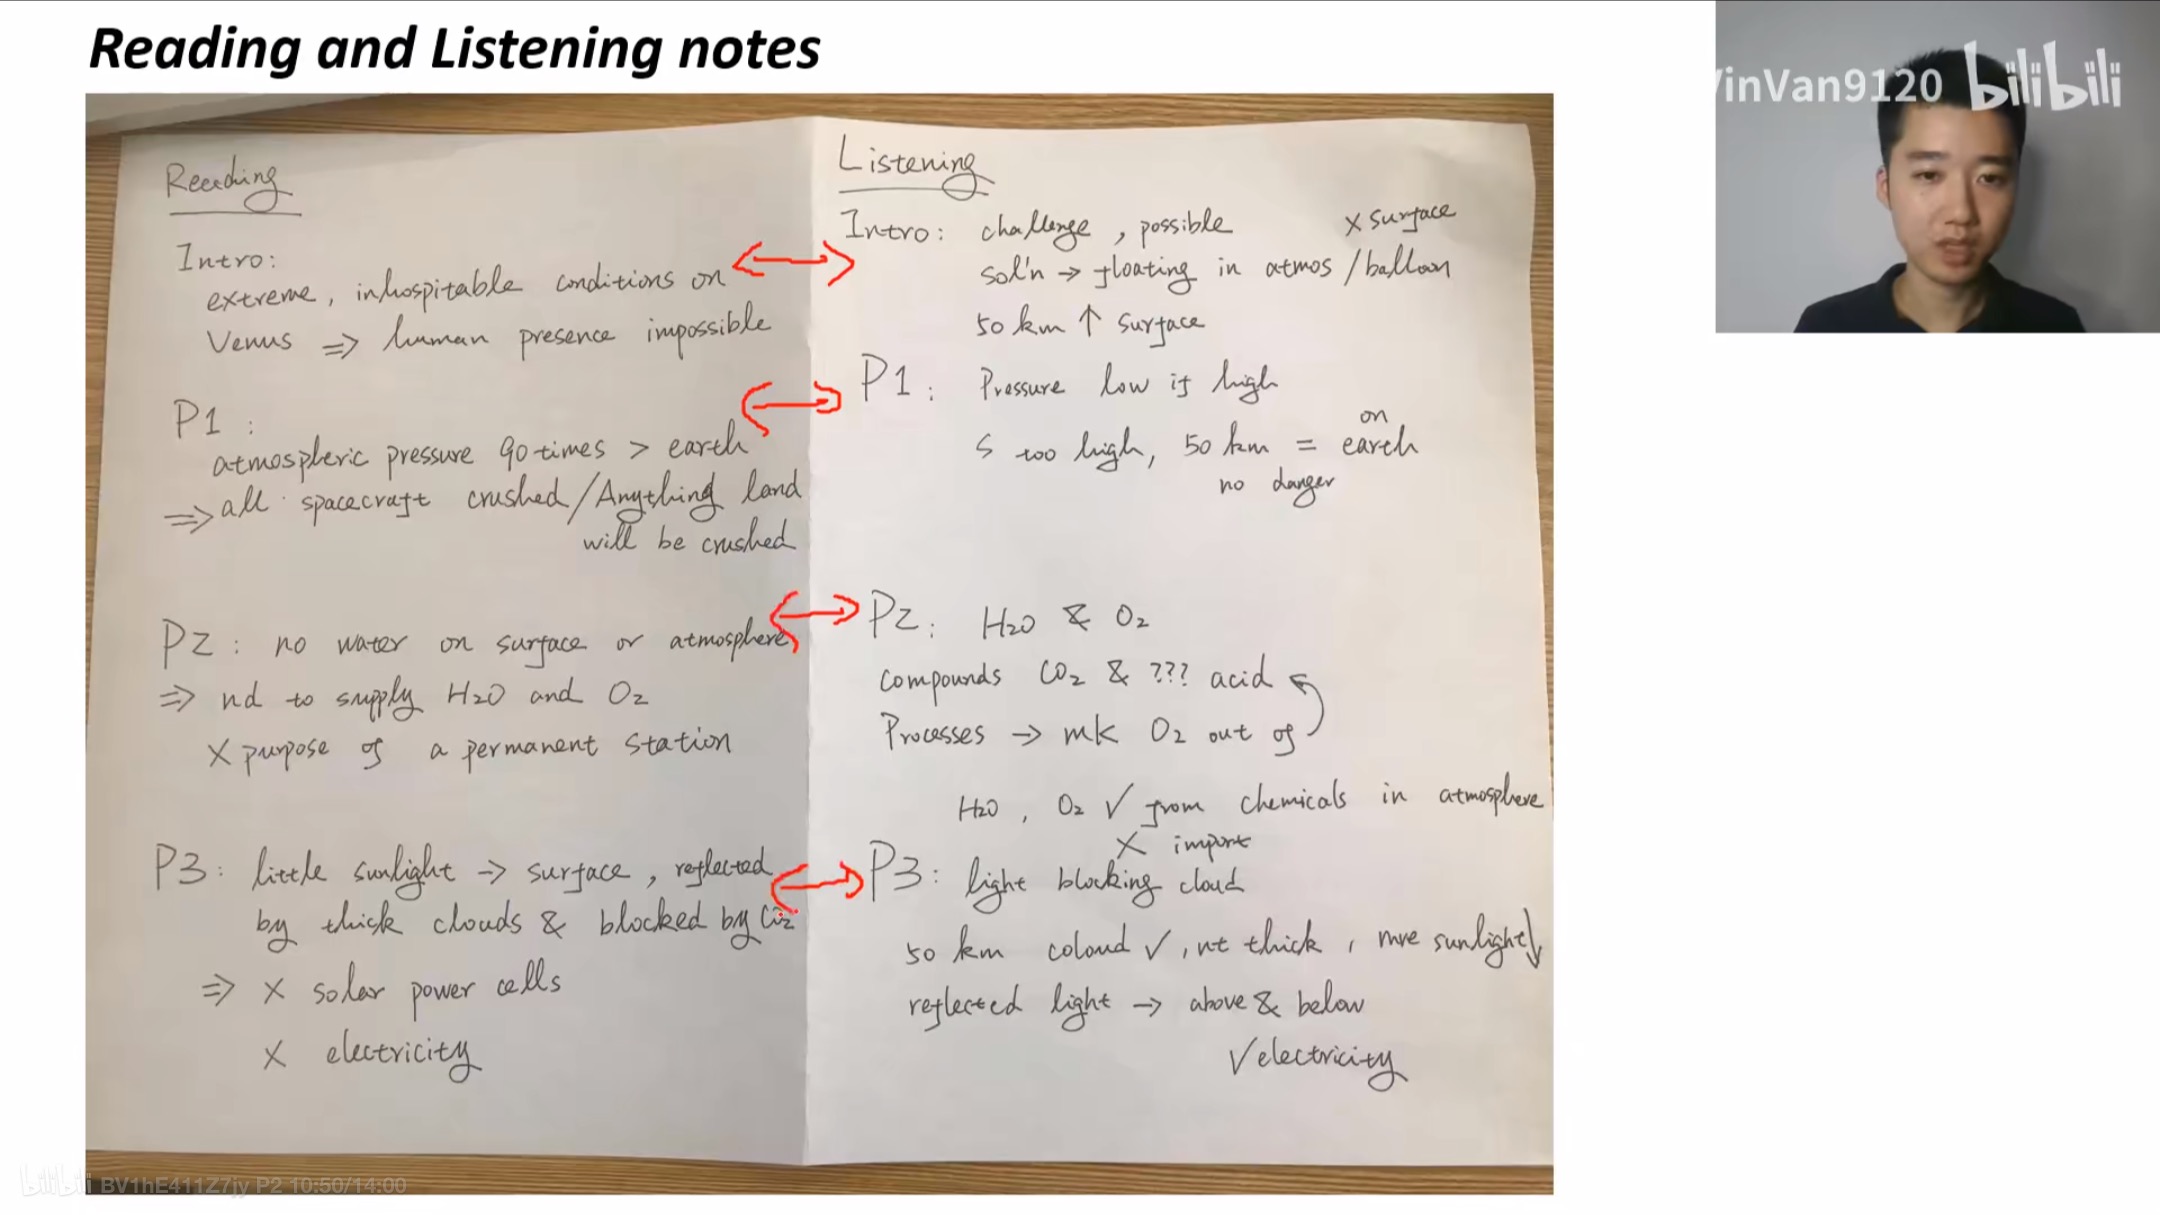 Reading and Listening notes
VinVan9120 bilibili
Reading
Intro:
extreme, inhospitable conditions on
Venus ⇒ human presence impossible
P1 :
atmospheric pressure 90 times > earth
⇒ all spacecraft crushed/Anything land
will be crushed
P2 : no water on surface or atmosphere
⇒ nd to supply H2O and O2
X purpose of a permanent station
P3 : little sunlight → surface, reflected
by thick clouds & blocked by CO2
⇒ X solar power cells
X electricity
Listening
Intro: challenge, possible X surface
sol'n → floating in atmos /balloon
50 km ↑ surface
P1 : Pressure low if high
on
S too high, 50 km = earth
no danger
P2 : H2O & O2
compounds CO2 & ??? acid
Processes → mk O2 out of
H2O, O2 ✓ from chemicals in atmosphere
X import
P3 : light blocking cloud
50 km coloud ✓, nt thick, mre sunlight↓
reflected light → above & below
✓ electricity
bilibili BV1hE411Z7jy P2 10:50/14:00